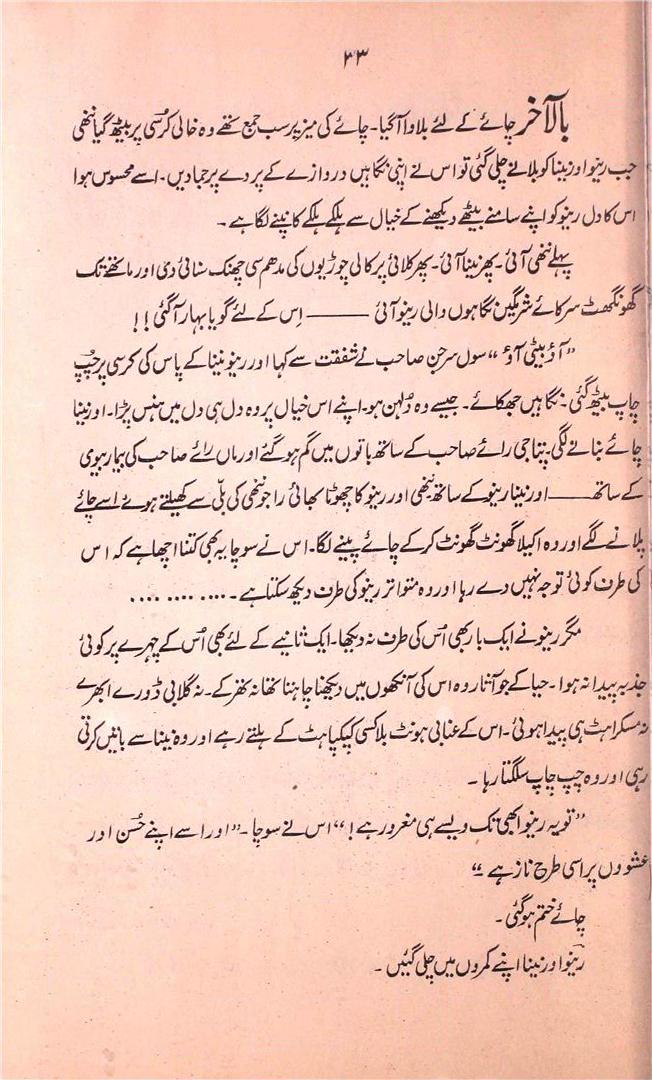 ۳۳
بالآخر چائے کے لئے بلاوا آگیا۔ چائے کی میز پر سب جمع تھے وہ خالی کرسی پر بیٹھ گیا ننھی
جب رینو اور نینا کو بلانے چلی گئی تو اس نے اپنی نگاہیں دروازے کے پردے پر جما دیں۔ اسے محسوس ہوا
اس کا دل رینو کو اپنے سامنے بیٹھے دیکھنے کے خیال سے ہلکے ہلکے کانپنے لگا ہے۔
پہلے ننھی آئی۔ پھر نینا آئی۔ پھر کلائی پر کالی چوڑیوں کی مدھم سی چھنک سنائی دی اور ماتھے تک
گھونگھٹ سرکائے شرمگیں نگاہوں والی رینو آئی ——— اس کے لئے گویا بہار آگئی !!
”آؤ بیٹی آؤ“ سول سرجن صاحب نے شفقت سے کہا اور رینو نینا کے پاس کی کرسی پر چپ
چاپ بیٹھ گئی۔ نگاہیں جھکائے۔ جیسے وہ دُلہن ہو۔ اپنے اس خیال پر وہ دل ہی دل میں ہنس پڑا۔ اور نینا
چائے بنانے لگی۔ پتا جی رائے صاحب کے ساتھ باتوں میں گم ہو گئے اور ماں رائے صاحب کی بیمار بیوی
کے ساتھ —— اور نینا رینو کے ساتھ ننھی اور رینو کا چھوٹا بھائی راجو ننھی کی بلّی سے کھیلتے ہوئے اسے چائے
پلانے لگے اور وہ اکیلا گھونٹ گھونٹ کرکے چائے پینے لگا۔ اس نے سوچا یہ بھی کتنا اچھا ہے کہ اس
کی طرف کوئی توجہ نہیں دے رہا اور وہ متواتر رینو کی طرف دیکھ سکتا ہے۔ .... .... ....
مگر رینو نے ایک بار بھی اُس کی طرف نہ دیکھا۔ ایک ثانیے کے لئے بھی اُس کے چہرے پر کوئی
جذبہ پیدا نہ ہوا۔ حیا کے جو آثار وہ اس کی آنکھوں میں دیکھنا چاہتا تھا نہ تھرکے۔ نہ گلابی ڈورے ابھرے
نہ مسکراہٹ ہی پیدا ہوئی۔ اس کے عنابی ہونٹ بلا کسی کپکپاہٹ کے ہلتے رہے اور وہ نینا سے باتیں کرتی
رہی اور وہ چپ چاپ سلگتا رہا۔
”تو یہ رینو ابھی تک ویسے ہی مغرور ہے !“ اس نے سوچا۔ ”اور اسے اپنے حُسن اور
عشووں پر اسی طرح ناز ہے۔“
چائے ختم ہو گئی۔
رینو اور نینا اپنے کمروں میں چلی گئیں۔